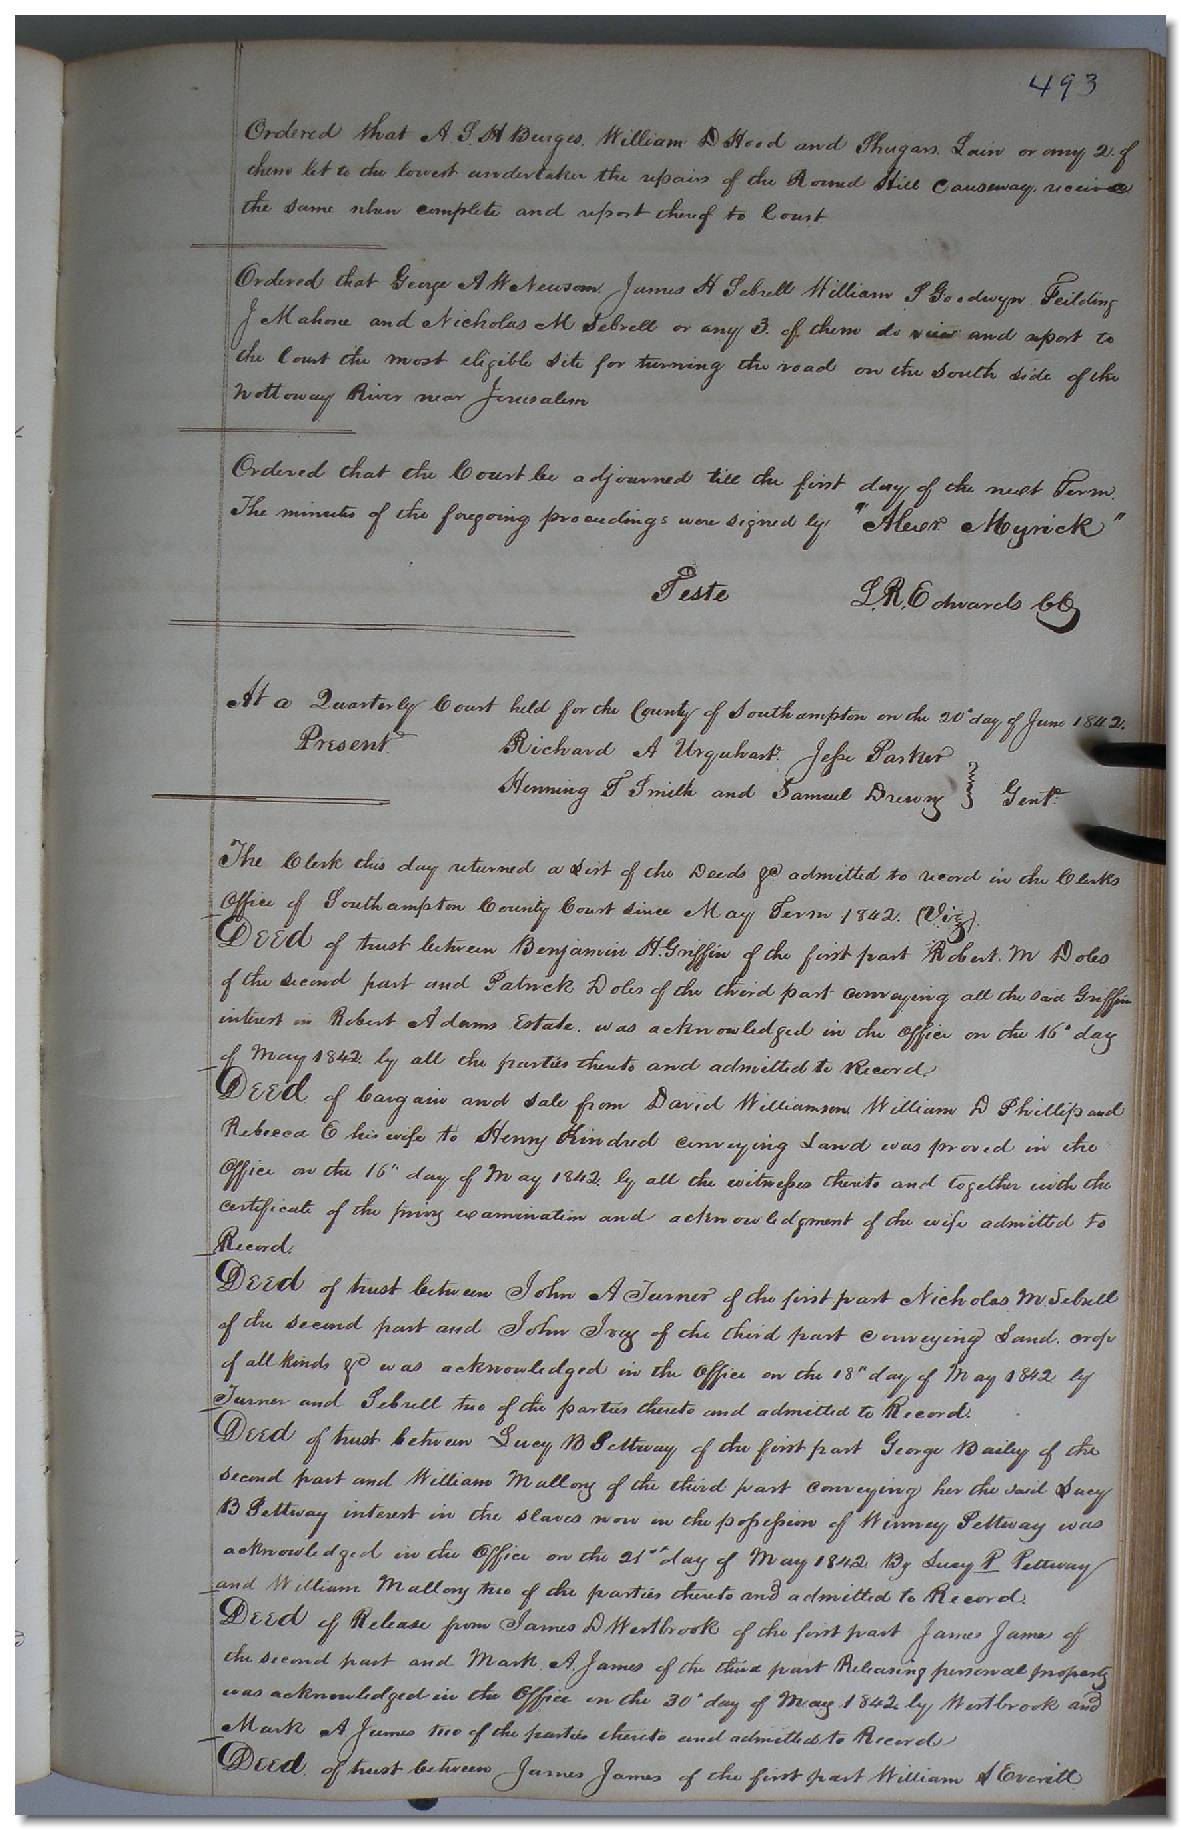 493
Ordered that A. S. H Burges. William D Hood and Shugars. Lain or any 2. of
them let to the lowest undertaker the repairs of the Round Hill Causeway, receive
the same when complete and report thereof to Court
Ordered that George A W Newsom, James H Sebrell William S Goodwyn Feilding
J Mahone and Nicholas M Sebrell or any 3. of them do view and report to
the Court the most eligible site for turning the road on the South side of the
Nottoway River near Jerusalem
Ordered that the Court be adjourned till the first day of the next Term.
The minutes of the foregoing proceedings were signed by "Alexr. Myrick"
Teste L. R. Edwards CC
At a Quarterly Court held for the County of Southampton on the 20th day of June 1842.
Present. Richard A Urquhart. Jesse Parker
Henning T Smith and Samuel Drewry } Gent.
The Clerk this day returned a List of the Deeds &c admitted to record in the Clerks
Office of Southampton County Court since May Term 1842. (Viz).
Deed of trust between Benjamin H. Griffin of the first part Robert. M Doles
of the second part and Patrick Doles of the third part conveying all the said Griffin
interest in Robert Adams Estate. was acknowledged in the Office on the 16th day
of May 1842. by all the parties thereto and admitted to Record.
Deed of bargain and sale from David Williamson, William D Phillips and
Rebecca E his wife to Henry Kindred conveying Land was proved in the
Office on the 16th day of May 1842, by all the witnesses thereto and together with the
certificate of the privy examination and acknowledgment of the wife admitted to
Record.
Deed of trust between John A Turner of the first part Nicholas M. Sebrell
of the second part and John Ivey of the third part conveying Land. crop
of all kinds &c was acknowledged in the Office on the 18th day of May 1842 by
Turner and Sebrell two of the parties thereto and admitted to Record.
Deed of trust between Lucy B Pettway of the first part George Baily of the
second part and William Mallory of the third part conveying her the said Lucy
B Pettway interest in the slaves now in the possession of Winney Pettway was
acknowledged in the Office on the 21st day of May 1842. By Lucy P Pettway
and William Mallory two of the parties thereto and admitted to Record.
Deed of Release from James D Westbrook of the first part James James of
the second part and Mark A. James of the third part Releasing personal property
was acknowledged in the Office on the 30th day of May 1842, by Westbrook and
Mark A James two of the parties thereto and admitted to Record
Deed. of trust between James James of the first part William S Everitt